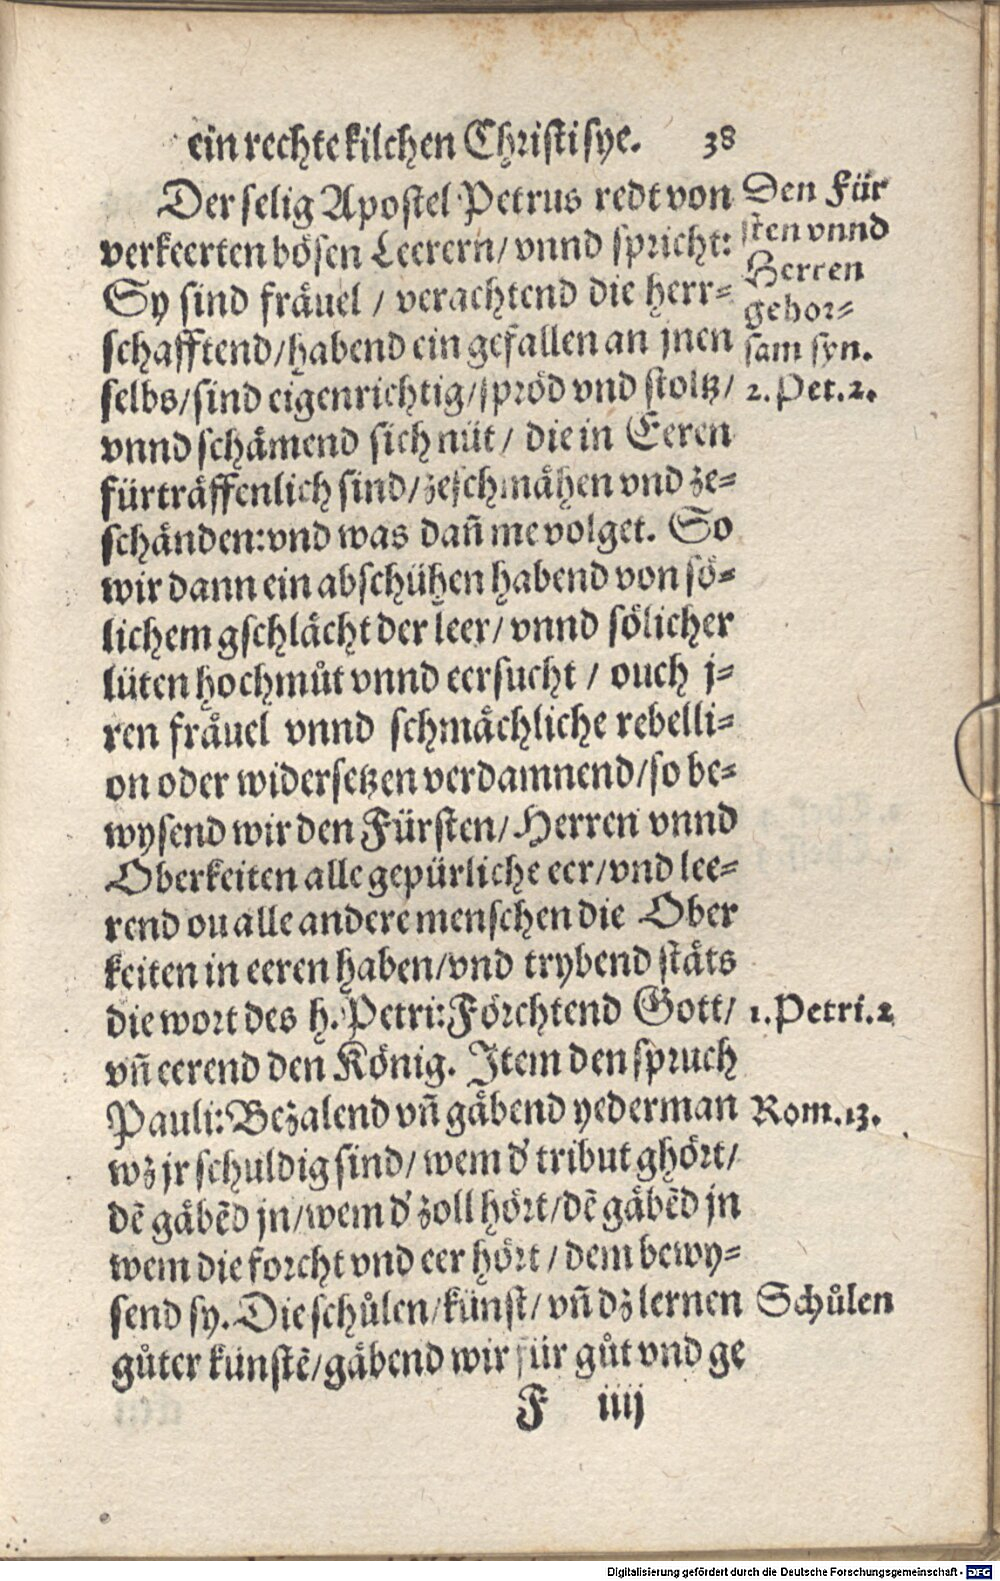 ein rechte kilchen Christi sye. 38
Der selig Apostel Petrus redt von
verkeerten bösen Leerern/ vnnd spricht:
Sy sind fräuel / verachtend die herr⸗
schafftend/habend ein gefallen an jnen
selbs/sind eigenrichtig/spröd vnd stoltz/
vnnd schämend sich nüt/ die in Eeren
fürträffenlich sind/zeschmähen vnd ze⸗
schänden:vnd was dañ me volget. So
wir dann ein abschühen habend von sö⸗
lichem gschlächt der leer/ vnnd sölicher
lüten hochmůt vnnd eersucht / ouch j⸗
ren fräuel vnnd schmächliche rebelli⸗
on oder widersetzen verdamnend/so be⸗
wysend wir den Fürsten/ Herren vnnd
Oberkeiten alle gepürliche eer/vnd lee⸗
rend ou alle andere menschen die Ober
keiten in eeren haben/vnd trybend stäts
die wort des h. Petri:Förchtend Gott/
vñ eerend den König. Item den spruch
Pauli:Bezalend vñ gäbend yederman
wz jr schuldig sind/ wem d' tribut ghört/
dē gäbēd jn/wem d' zoll hört/dē gäbēd jn
wem die forcht vnd eer hört / dem bewy⸗
send sy. Die schůlen/künst/ vñ dz lernen
gůter künstē/gäbend wir für gůt vnd ge
F iiij
Den Für
sten vnnd
Herren
gehor⸗
sam syn.
2. Pet. 2.
1. Petri. 2
Rom. 13.
Schůlen
Digitalisierung gefördert durch die Deutsche Forschungsgemeinschaft - DFG